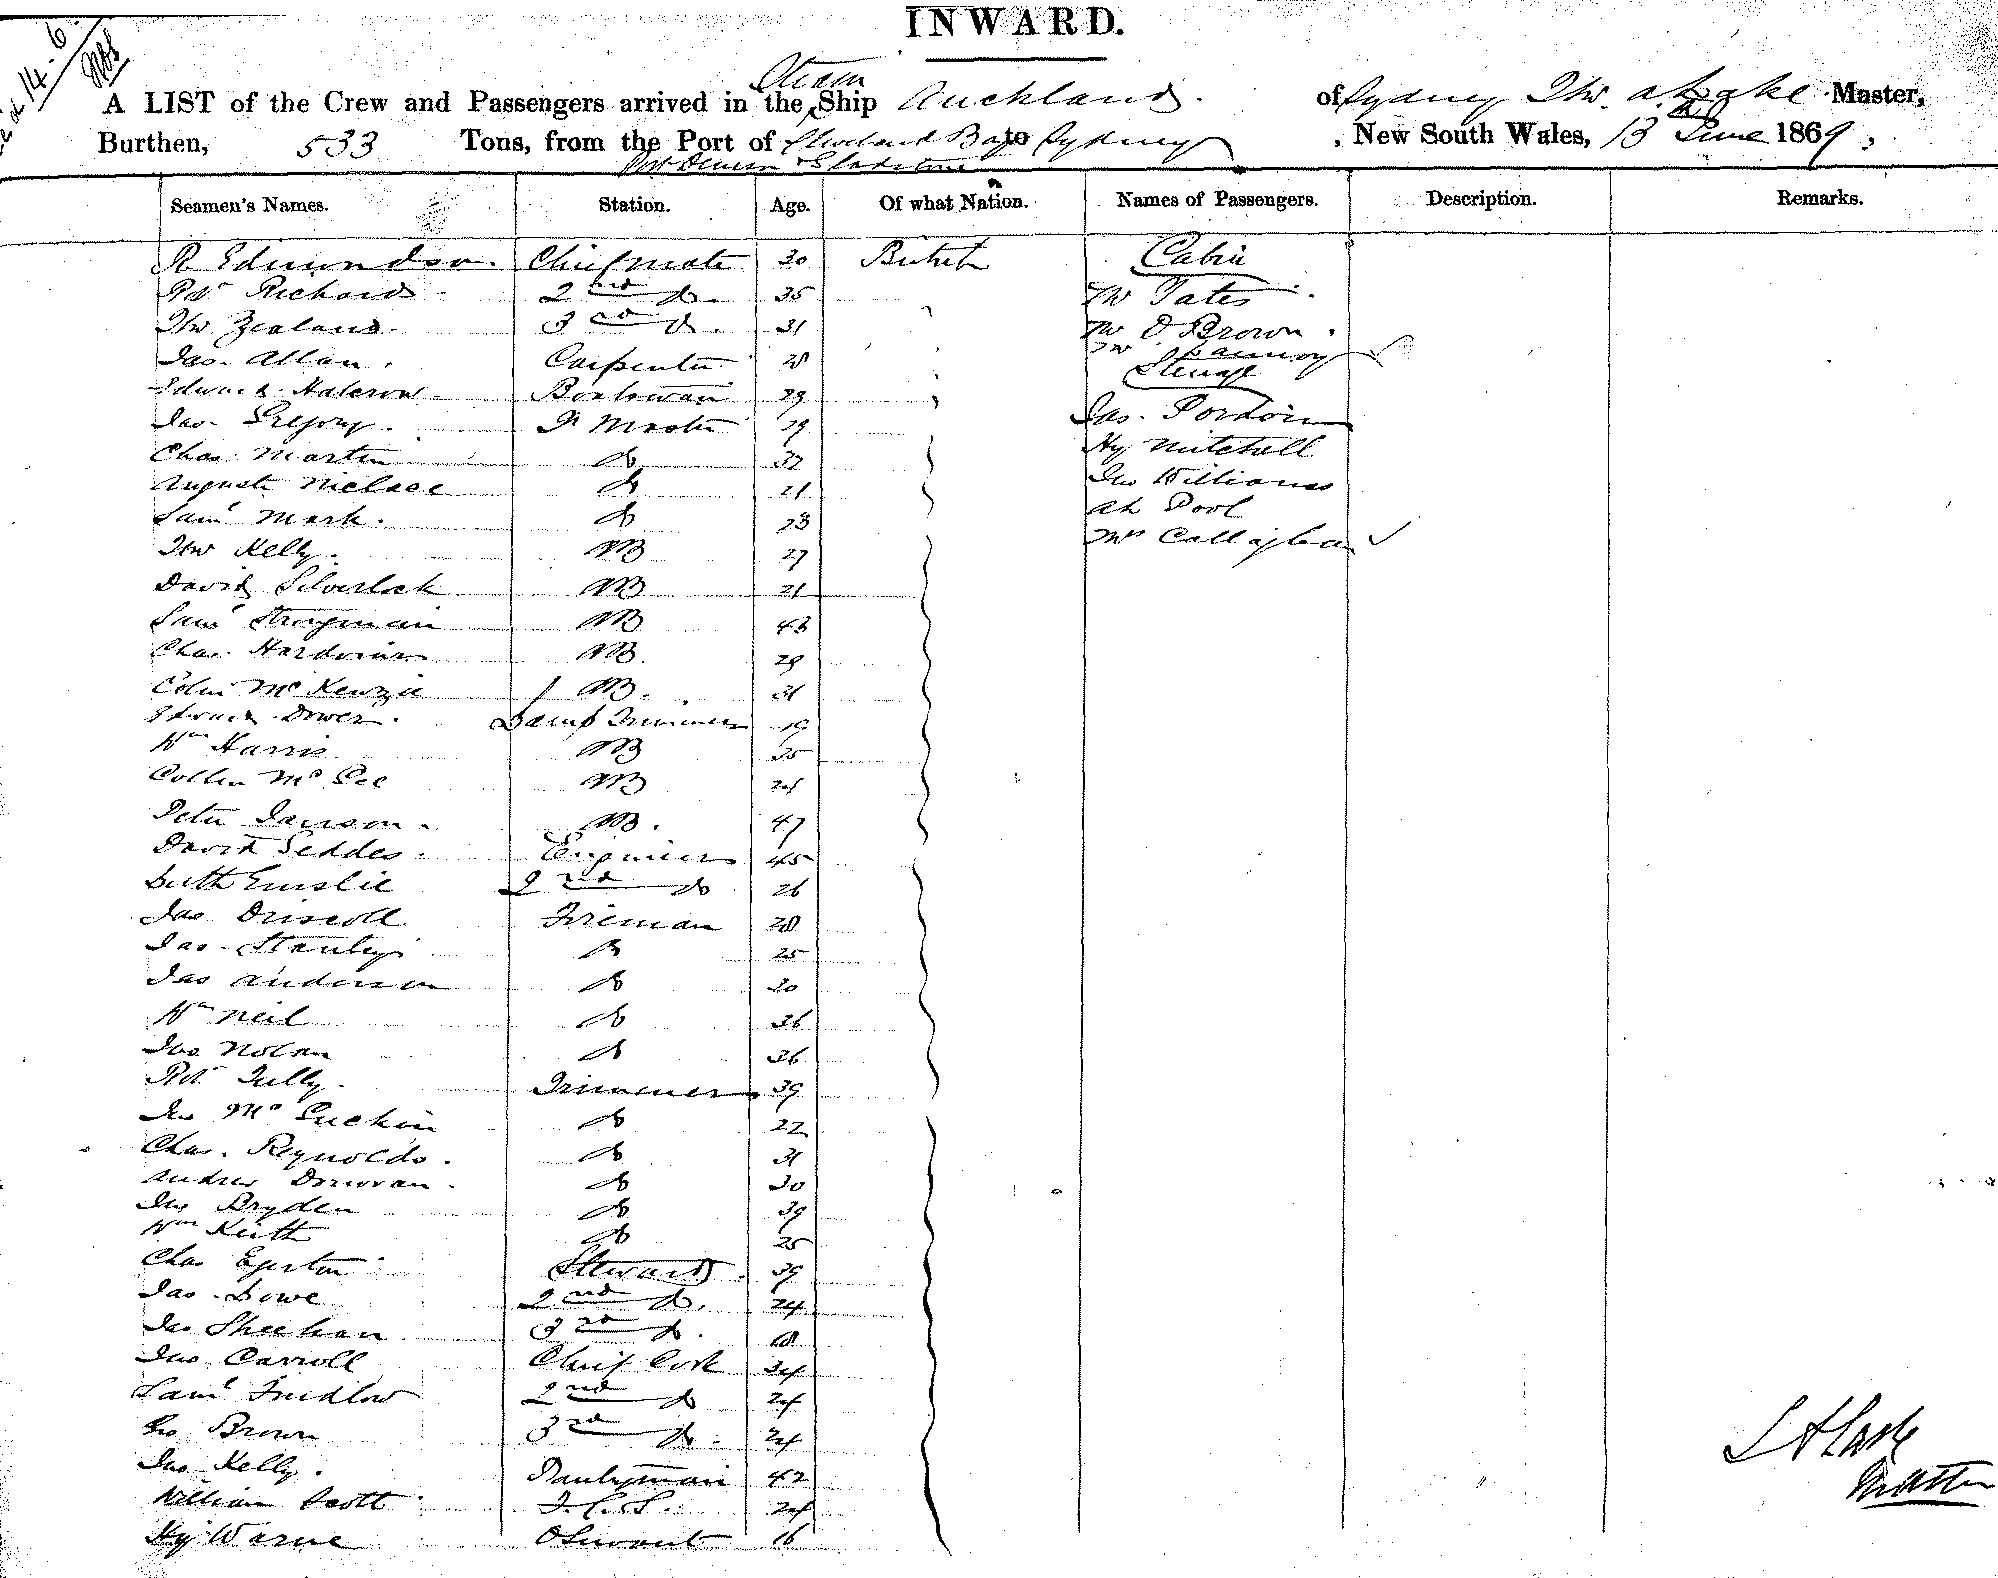 14-6
INWARD.
A LIST of the Crew and Passengers arrived in the Steam Ship Auckland of Sydney Master,
Burthen, 533 Tons, from the Port of Cleveland Bay to Sydney, New South Wales, 13 June 1869,
Port Denison & Gladstone
Seamen's Names. Station. Age. Of what Nation. Names of Passengers. Description. Remarks.
R Edmundson. Chief mate 30 British Cabin
Rt Richards 2nd Do. 35 Mr Tates
Thos Zealand. 3rd Do. 31 Mr D. Brown.
Jas. Allan. Carpenter 28 Mr
Edward Halcrow Boatswain 29 Steerage
Jas. Gregory. Qr Master 29 Jas.
Chas Martin Do 32 Hy Mitchell
August Do 21 Jno Williams
Saml Mark. Do 23 Ah Pool
Thos Kelly. AB 27 Mrs Callaghan
David Silverlock AB 21
Saml AB 43
Chas. AB. 29
Colin McKenzie AB. 31
Edward Dower. Lamp Trimmer 19
Wm Harris AB 35
Collin McGee AB 24
Peter AB. 47
David Geddes. Engineer 45
Emslie 2nd Do 26
Jas Driscoll Fireman 28
Jas. Stanley Do 25
Jas Anderson Do 30
Wm Neil Do 36
Jas Nolan Do 36
Rt Tully. Trimmer 39
Jno Do 22
Chas. Reynolds. Do 31
Andrew Donovan. Do 30
Jno Bryden Do 39
Wm Keith Do 25
Chas Egerton Steward 39
Jas. Lowe 2nd Do. 24
Jno Sheehan 3rd Do. 18
Jno Carroll Chief Cook 34
Saml 2nd Do 24
Geo Brown 3rd Do. 24
Jno Kelly. Pantryman 42
William Scott 24
Hy Warne O Servant 16
Master